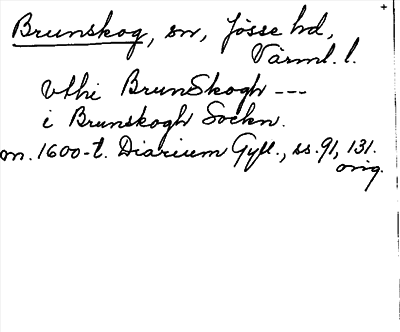 Brunskog, sn, Jösse hd,
Värml. l.
vthi BrunSkogh ---
i Brunskogh Sockn.
m. 1600-t. Diarium Gyll., ss. 91, 131.
orig.